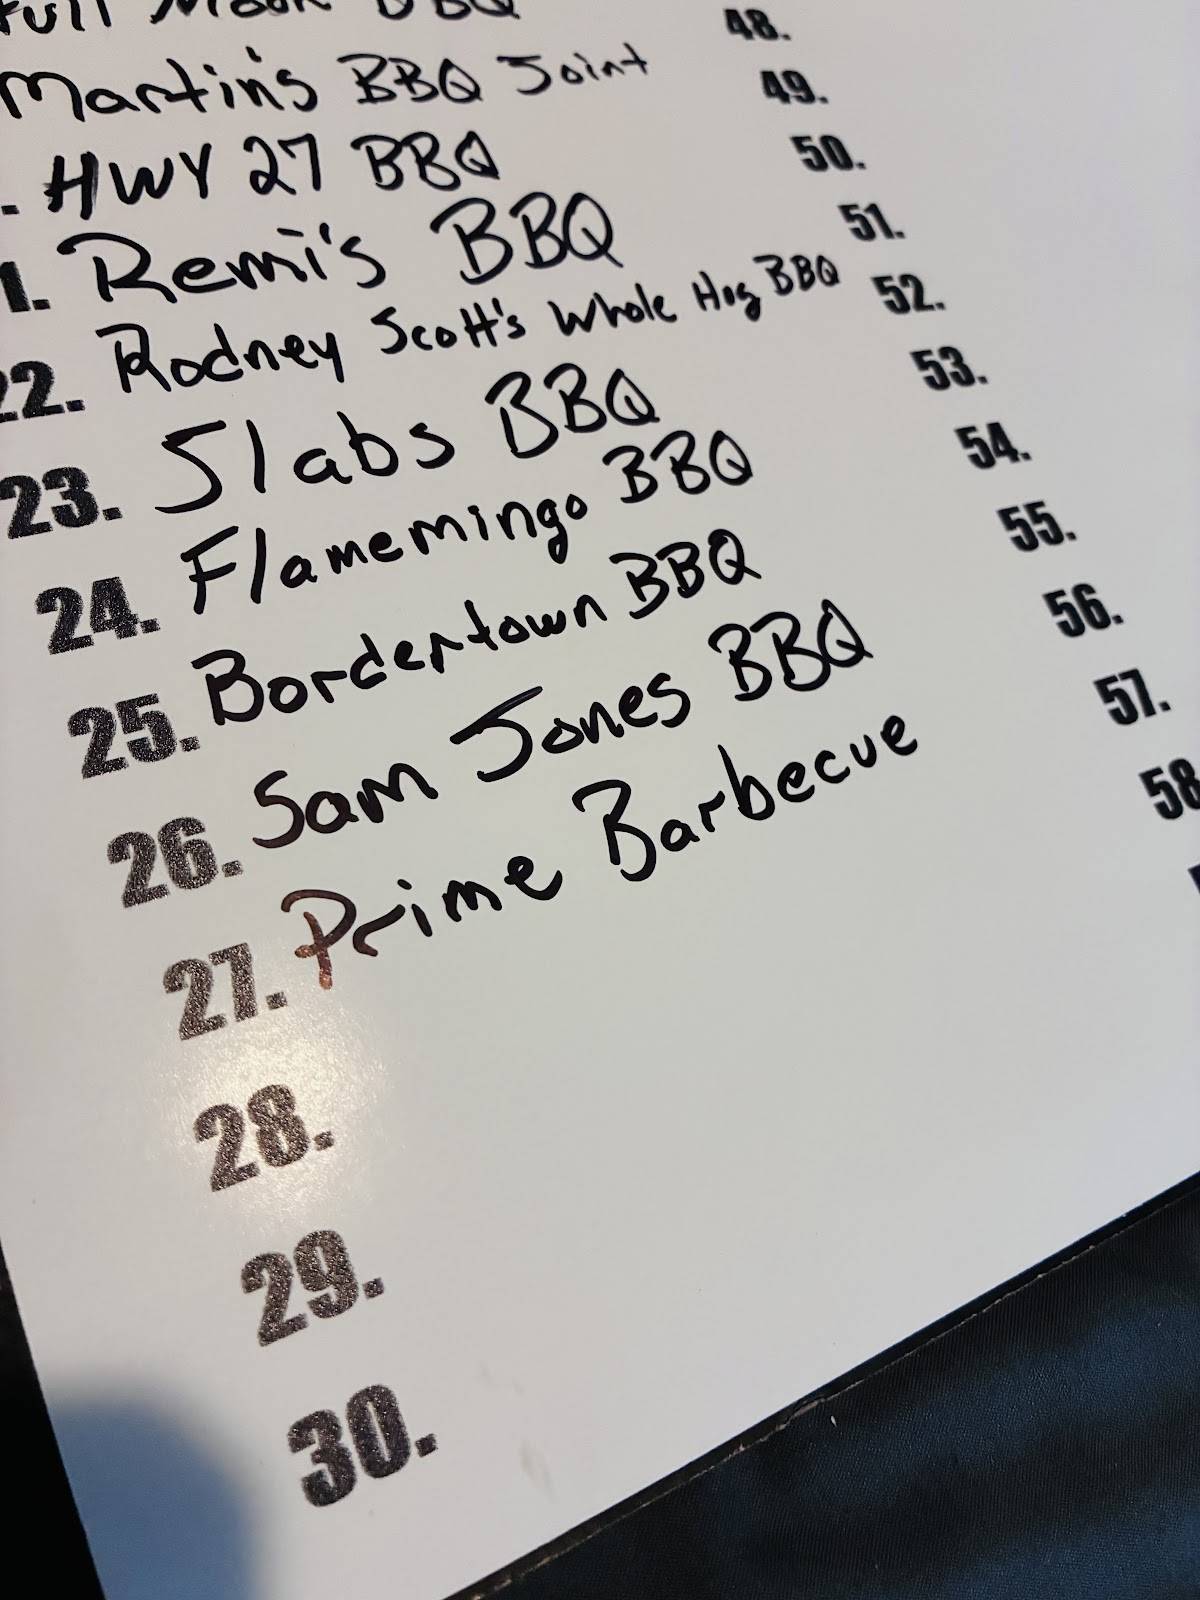 Full Moon BBQ
Martin's BBQ Joint
. HWY 27 BBQ
1. Remi's BBQ
22. Rodney Scott's Whole Hog BBQ
23. Slabs BBQ
24. Flamemingo BBQ
25. Bordertown BBQ
26. Sam Jones BBQ
27. Prime Barbecue
28.
29.
30.
48.
49.
50.
51.
52.
53.
54.
55.
56.
57.
58